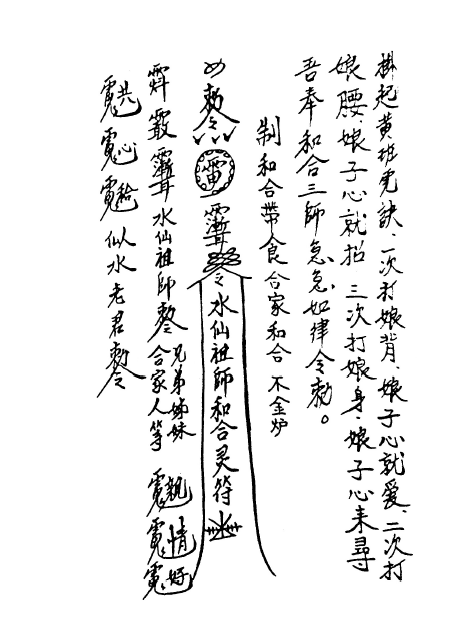 掛起黄班鬼訣、一次打娘背、娘子心就爱、二次打
娘腰、娘子心就招 三次打娘身、娘子心来尋
吾奉和合三師急急如律令勅。
制和合帶食合家和合 不金炉
勅令
雷
令水仙祖師和合灵符
水仙祖師勅令 兄弟姊妹 合家人等 親情好
共心 似水老君勅令